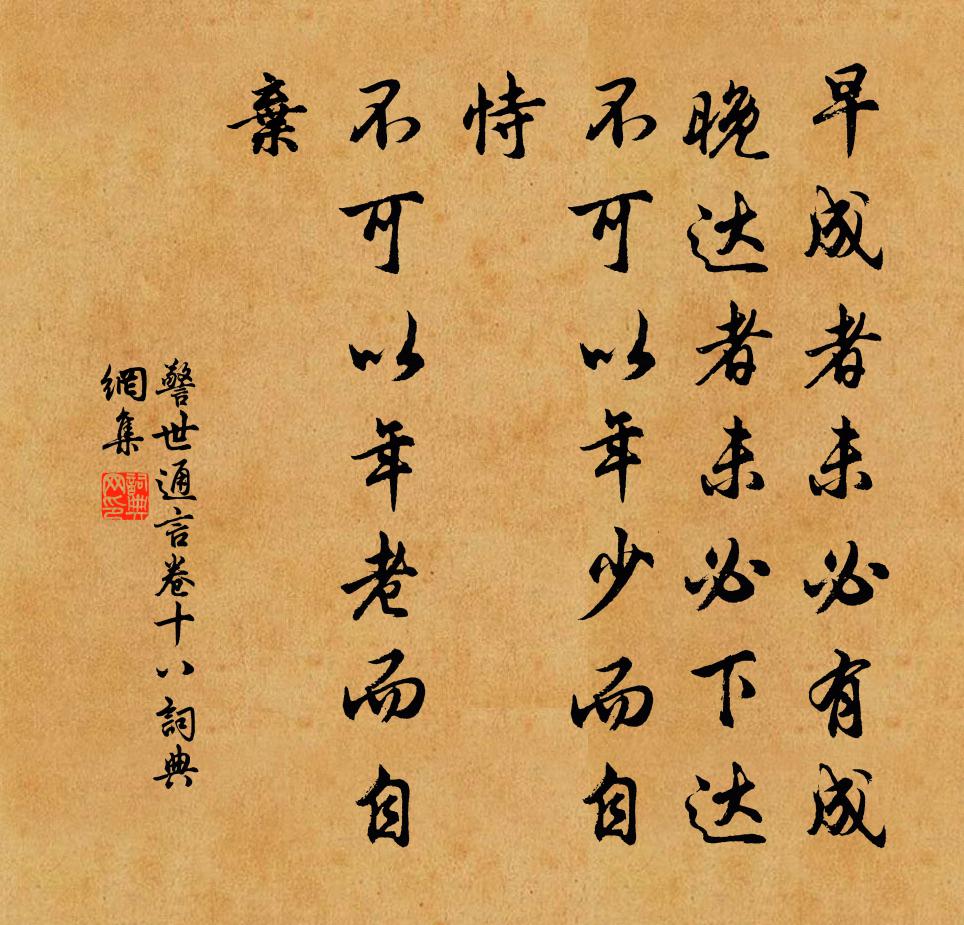 早成者未必有成
晚达者未必下达
不可以年少而自
恃
不可以年老而自
棄
警世通言卷十八詞典
網集
詞典
网印